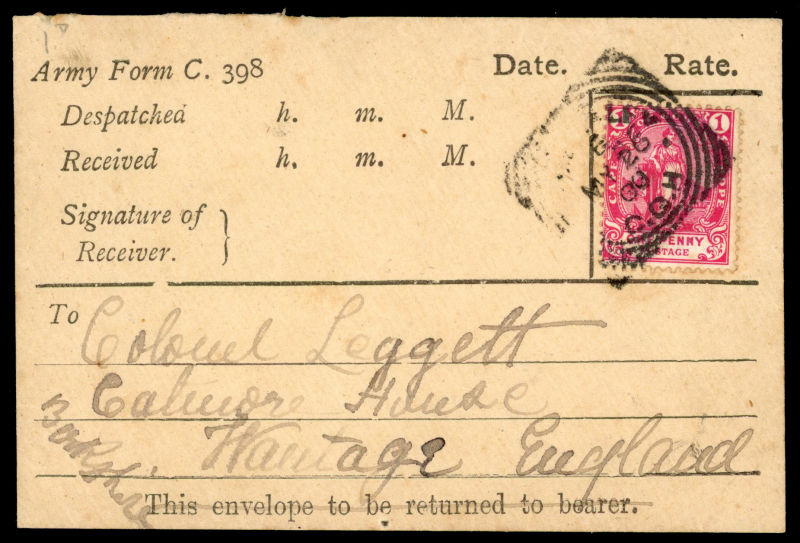 Army Form C. 398 Date. Rate.
Despatched h. m. M.
Received h. m. M.
Signature of
Receiver. }
1 1
CAPE OPE
PENNY
STAGE
MY 26
00
To Colonel Leggett
House
Wantage England
Berkshire
This envelope to be returned to bearer.